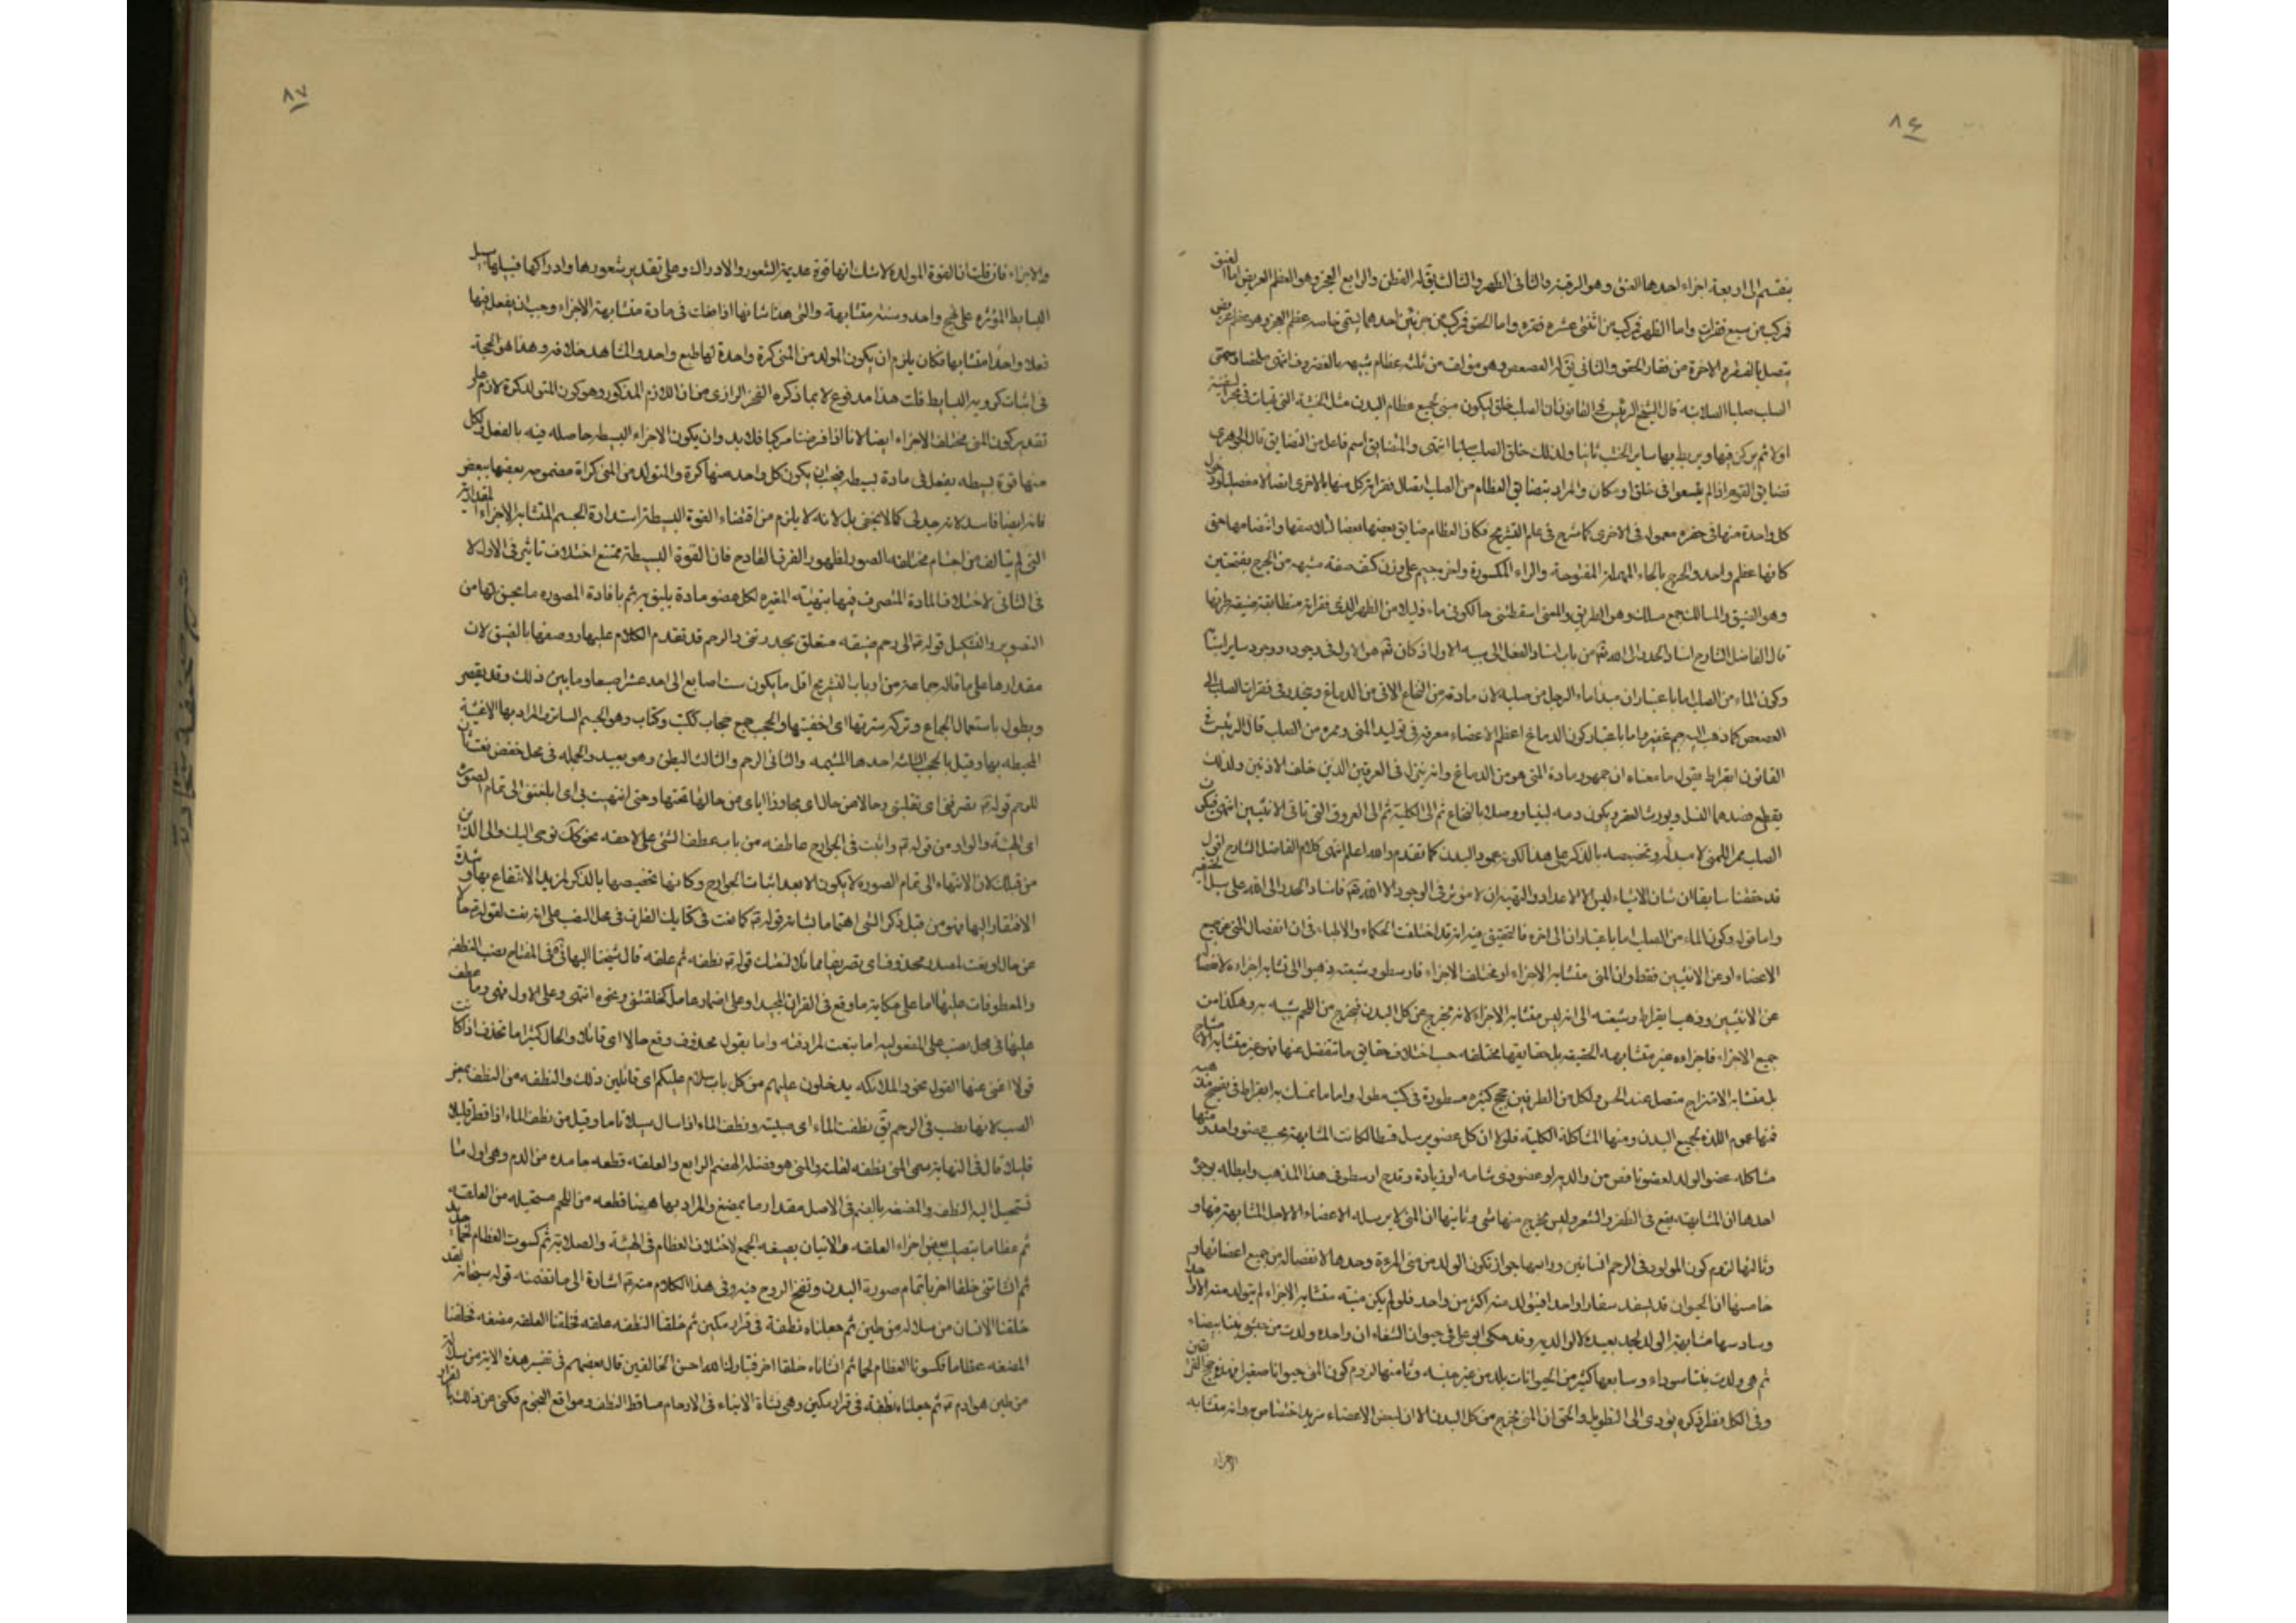 ٨٤
ينقسم الى اربعة اجزاء احدها العنق وهو الرقبة والثانى الظهر والثالث يق له القطن والرابع العجز وهو العظم العريض اما العنق
فمركب من سبع فقرات واما الظهر فمركب من اثنتى عشره فقره واما الحقو فمركب من جزئين احدهما يسمى خاصه عظم العجز وهو عظم عريض
يتصل بالفقره الاخرة من فقار الحقو والثانى يق له العصعص وهو مؤلف من ثلثه عظام شبيهه بالغضروف انتهى ملخصا وسمى
الصلب صلبا لصلابته قال الشيخ الرئيس فى القانون ان الصلب خلق ليكون مبنى لجميع عظام البدن مثل الخشبة التى تهيأ فى نجر السفينة
اولا ثم يركز فيها ويربط بها ساير الخشب ثانيا ولذلك خلق الصلب صلبا انتهى والمتضايق اسم فاعل من التضايق قال الجوهرى
تضايق القوم اذا لم يتسعوا فى خلق او مكان والمراد بتضايق العظام من الصلب اتصال فقراته كل منها بالاخرى اتصالا مفصليا
كل واحدة منها فى حفره معموله فى الاخرى كما شرح فى علم التشريح فكان العظام ضايق بعضها بعضا لتلاصقها وانضمامها حتى
كانها عظم واحد والحرج بالحاء المهملة المفتوحة والراء المكسورة واخره جيم على وزن كتف صفة مشبهه من الحرج بفتحتين
وهو الضيق والمسالك جمع مسلك وهو الطريق والمعنى اسقطتنى حالكونى ماء ذليلا من الظهر الذى فقراته متطابقة ضيقه طرقها
قال الفاضل الشارح اسناد الحدر الى الله تع من باب اسناد الفعل الى سببه الاول اذ كان تع هو الاول فى وجوده ووجود ساير اسبابه
وكون الماء من الصلب اما باعتبار ان مبدأ ماء الرجل من صلبه لان مادته من النخاع الاتى من الدماغ وينحدر فى فقرات الصلب الى
العصعص كما ذهب اليه جم غفير واما باعتبار كون الدماغ اعظم الاعضاء معرفه فى توليد المنى وممره من الصلب قال الرئيس فى
القانون ابقراط يقول ما معناه ان جمهور مادة المنى هو من الدماغ وانه ينزل فى العرقين الذين خلف الاذنين ولذلك
يقطع فصدهما النسل ويورث العقر ويكون دمه لبنيا ووصلا بالنخاع ثم الى الكلية ثم الى العروق التى تاتى الانثيين انتهى فيكون
الصلب ممرا للمنى لا مبدأ له وتخصيصه بالذكر على هذا لكونه عمود البدن كما تقدم والله اعلم انتهى كلام الفاضل الشارح اقول
قد حققنا سابقا ان شان الاشياء ليس الا الاعداد والتهيئه وان لا مؤثر فى الوجود الا الله تع فاسناد الحدر الى الله على سبيل الحقيقه
واما قوله وكون الماء من الصلب اما باعتبار ان الى اخره فالتحقيق فيه انه قد اختلفت الحكماء والاطباء فى ان انفصال المنى من جميع
الاعضاء او عن الانثيين فقط وان المنى متشابه الاجزاء او مختلف الاجزاء فارسطو وشيعته ذهبوا الى تشابه اجزاءه لانفصاله
عن الانثيين وذهب بقراط وشيعته الى انه ليس متشابه الاجزاء لانه يخرج عن كل البدن فيخرج من اللحم شبيه به وهكذا من
جميع الاجزاء فاجزاءه غير متشابهه الحقيقه بل حقايقها مختلفه حسب اختلاف حقايق ما تنفصل عنها فهو غير متشابه الامشاج
بل متشابه الامتزاج متصل عند الحس ولكل من الطرفين حجج كثيره مسطورة فى كتب مطوله واما ما تمسك به ابقراط فى تصحيح مذهبه
فمنها عموم اللذه لجميع البدن ومنها المشاكلة الكلية فلولا ان كل عضو يرسل قسطا لكانت المشابهة بحسب عضو واحد ومنها
مشاكله عضو الولد لعضو ناقص من والديه او عضو ذى شامه او زيادة وقدح ارسطو فى هذا المذهب وابطله بوجوه
احدها ان المشابهة يقع فى الظفر والشعر وليس يخرج منها شى وثانيها ان المنى لا يرسله الاعضاء الالية المشابهة فيها و
وثالثها لزوم كون المولود فى الرحم انسانين ورابعها جواز تكون الولد من منى المرءة وحدها لانفصاله من جميع اعضائها و
خامسها ان الحيوان قد يسفد سفادا واحدا فيتولد منه اكثر من واحد فلو لم يكن منيه متشابه الاجزاء لم يتولد منه الا واحد
وسادسها مشابهة الولد لجد بعيد لا لوالديه وقد حكى ابو على فى حيوان الشفاء ان واحده ولدت من حبشى بنتا بيضاء
ثم هى ولدت بنتا سوداء وسابعها كثير من الحيوانات يلد من غير جنسه وثامنها لزوم كون المنى حيوانا صغيرا
وفى الكل نظر ذكره يؤدى الى التطويل والحق ان المنى يخرج من كل البدن الا ان لبعض الاعضاء مزيد اختصاص وانه متشابه
الاجزاء
٨٧
والاجزاء فان قلت ان القوة المولدة لا شك انها قوة عديمة الشعور والادراك وعلى تقدير شعورها وادراكها فسبيلها سبيل
البسايط المؤثره على نهج واحد وسنته متشابهة والتى هذا شانها اذا صادفت فى مادة متشابهة الاجزاء وجب ان يفعل فيها
فعلا واحدا متشابها فكان يلزم ان يكون المولد من المنى كرة واحدة لها طبع واحد والمشاهد خلافه وهذا هو الحجة
فى اثبات كرويه البسايط قلت هذا مدفوع لا بما ذكره الفخر الرازى من ان اللازم المذكور وهو كون المتولد كرة لازم على
تقدير كون المنى مختلف الاجزاء ايضا لانا اذا فرضنا مركبا فلا بد وان يكون الاجزاء البسيطه حاصله فيه بالفعل ولكل
منها قوة بسيطه يفعل فى مادة بسيطه فيجب ان يكون كل واحد منها كرة والمتولد من المنى كراة مضمومه بعضها ببعض
فانه ايضا فاسد لانه جدلى كما لا يخفى بل لانه لا يلزم من اقتضاء القوة البسيطة استدارة الجسم المتشابه الاجزاء المقدارية
التى لم يتالف من اجسام مختلفه الصور لظهور الفرق القادح فان القوة البسيطة ممتنع اختلاف تاثيرى فى الاول لا
فى الثانى لاختلاف المادة المتصرف فيها بتهيئه المغيره لكل عضو مادة يليق به ثم بافادة المصوره ما يحق لها من
التصوير والتشكيل قوله ع الى رحم ضيقه متعلق بحدرتنى والرحم قد تقدم الكلام عليها ووصفها بالضيق لان
مقدارها على ما قاله جماعة من ارباب التشريح اقل ما يكون ست اصابع الى احد عشر اصبعا وما بين ذلك وقد يقصر
ويطول باستعمال الجماع وتركه سترتها اى اخفيتها والحجب جمع حجاب ككتب وكتاب وهو الجسم الساتر والمراد بها الاغشية
المحيطه بها وقيل بالحجب الثلثه احدها المشيمه والثانى الرحم والثالث البطن وهو بعيد والجمله فى محل خفض نعتان
للرحم قوله ع تصرفنى اى تقلبنى وحالا من حال اى مجاوزا اياى من حال لها تحتها وحتى انتهيت بى اى ابلغتنى الى تمام الصورة
اى الهيئة والواو من قوله ع واثبت فى الجوارح عاطفه من باب عطف الشئ على لاحقه نحو كذلك يوحى اليك والى الذين
من قبلك لان الانتهاء الى تمام الصوره لا يكون الا بعد اثبات الجوارح وكانها تخصيصها بالذكر لمزيد الانتفاع بها وشدة
الافتقار اليها فهو من قبيل ذكر الشى اهتماما بشانه قوله ع كما نعت فى كتابك الظرف فى محل النصب على انه نعت لقوله ع حالا
عن حال او نعت لمصدر محذوف اى تصريفا مماثلا لنعتك قوله ع نطفه ثم علقه قال شيخنا البهائى فى المفتاح نصب النطفه
والمعطوفات عليها اما على حكاية ما وقع فى القران المجيد او على اضمار عامل كخلقتنى ونحوه انتهى وعلى الاول فهى وما عطف
عليها فى محل نصب على المفعوليه اما بنعت لمرادفته واما بقول محذوف وقع حالا اى قائلا والحال كثيرا ما تحذف اذا كانت
قولا اغنى عنها القول نحو والملائكه يدخلون عليهم من كل باب سلام عليكم اى قائلين ذلك والنطفه من النطف بمعنى
الصب لانها تصب فى الرحم يق نطفت الماء اى صببته ونطف الماء اذا سال سيلا تاما وقيل من نطف الماء اذا قطر قليلا
قليلا قال فى النهاية سمى المنى نطفه لقلته والمنى هو فضله الهضم الرابع والعلقه قطعه جامده من الدم وهى اول ما
تستحيل اليه النطفه والمضغه بالضم فى الاصل مقدار ما يمضغ والمراد بها هيهنا قطعه من اللحم مستحيله من العلقه
ثم عظاما بتصليب بعض اجزاء العلقه والاتيان بصيغه الجمع لاختلاف العظام فى الهيئة والصلابة ثم كسوت العظام لحما
ثم انشأتنى خلقا اخر باتمام صورة البدن ونفخ الروح فيه وفى هذا الكلام منه ع اشارة الى ما تضمنه قوله سبحانه ولقد
خلقنا الانسان من سلاله من طين ثم جعلناه نطفة فى قرار مكين ثم خلقنا النطفه علقه فخلقنا العلقه مضغه فخلقنا
المضغه عظاما فكسونا العظام لحما ثم انشاناه خلقا اخر فتبارك الله احسن الخالقين قال بعضهم فى تفسير هذه الاية من سلالة
من طين هو ادم ع ثم جعلناه نطفة فى قرار مكين وهى نشأة الابناء فى الارحام مساقط النطف ومواقع النجوم فكنى عن ذلك